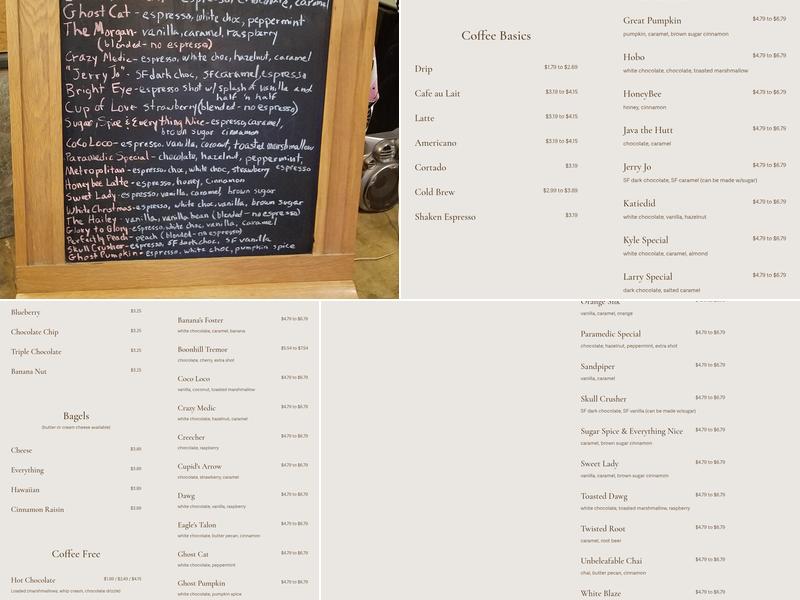 Ghost Cat - espresso, white choc, peppermint
The Morgan - vanilla, caramel, raspberry
(blended - no espresso)
Crazy Medic - espresso, white choc, hazelnut, caramel
"Jerry Jo" - SF dark choc, SF caramel, espresso
Bright Eye - espresso shot w/ splash of vanilla and
half 'n half
Cup of Love - strawberry (blended - no espresso)
Sugar, Spice & Everything Nice - espresso, caramel,
brown sugar cinnamon
CoCo Loco - espresso, vanilla, coconut, toasted marshmallow
Paramedic Special - chocolate, hazelnut, peppermint,
espresso
Metropolitan - espresso, choc, white choc, strawberry
Honeybee Latte - espresso, honey, cinnamon
Sweet Lady - espresso, vanilla, caramel, brown sugar
White Christmas - espresso, white choc, vanilla, brown sugar
The Hailey - vanilla, vanilla bean (blended - no espresso)
Glory to Glory - espresso, white choc, vanilla, caramel
Perfectly Peach - peach (blended - no espresso)
Skull Crusher - espresso, SF dark choc, SF vanilla
Ghost Pumpkin - espresso, white choc, pumpkin spice
Coffee Basics
Drip $1.79 to $2.69
Cafe au Lait $3.19 to $4.15
Latte $3.19 to $4.15
Americano $3.19 to $4.15
Cortado $3.19
Cold Brew $2.99 to $3.89
Shaken Espresso $3.19
Great Pumpkin $4.79 to $6.79
pumpkin, caramel, brown sugar cinnamon
Hobo $4.79 to $6.79
white chocolate, chocolate, toasted marshmallow
HoneyBee $4.79 to $6.79
honey, cinnamon
Java the Hutt $4.79 to $6.79
chocolate, caramel
Jerry Jo $4.79 to $6.79
SF dark chocolate, SF caramel (can be made w/sugar)
Katiedid $4.79 to $6.79
white chocolate, vanilla, hazelnut
Kyle Special $4.79 to $6.79
white chocolate, caramel, almond
Larry Special $4.79 to $6.79
dark chocolate, salted caramel
Blueberry $3.25
Chocolate Chip $3.25
Triple Chocolate $3.25
Banana Nut $3.25
Bagels
(butter or cream cheese available)
Cheese $3.89
Everything $3.89
Hawaiian $3.89
Cinnamon Raisin $3.89
Coffee Free
Hot Chocolate $1.99 / $2.49 / $4.15
Loaded (marshmallows, whip cream, chocolate drizzle)
Banana's Foster $4.79 to $6.79
white chocolate, caramel, banana
Boonhill Tremor $5.54 to $7.54
chocolate, cherry, extra shot
Coco Loco $4.79 to $6.79
vanilla, coconut, toasted marshmallow
Crazy Medic $4.79 to $6.79
white chocolate, hazelnut, caramel
Creecher $4.79 to $6.79
chocolate, raspberry
Cupid's Arrow $4.79 to $6.79
chocolate, strawberry, caramel
Dawg $4.79 to $6.79
white chocolate, vanilla, raspberry
Eagle's Talon $4.79 to $6.79
white chocolate, butter pecan, cinnamon
Ghost Cat $4.79 to $6.79
white chocolate, peppermint
Ghost Pumpkin $4.79 to $6.79
white chocolate, pumpkin spice
Orange Silk
vanilla, caramel, orange
Paramedic Special $4.79 to $6.79
chocolate, hazelnut, peppermint, extra shot
Sandpiper $4.79 to $6.79
vanilla, caramel
Skull Crusher $4.79 to $6.79
SF dark chocolate, SF vanilla (can be made w/sugar)
Sugar Spice & Everything Nice $4.79 to $6.79
caramel, brown sugar cinnamon
Sweet Lady $4.79 to $6.79
vanilla, caramel, brown sugar cinnamon
Toasted Dawg $4.79 to $6.79
white chocolate, toasted marshmallow, raspberry
Twisted Root $4.79 to $6.79
caramel, root beer
Unbeleafable Chai $4.79 to $6.79
chai, butter pecan, cinnamon
White Blaze $4.79 to $6.79